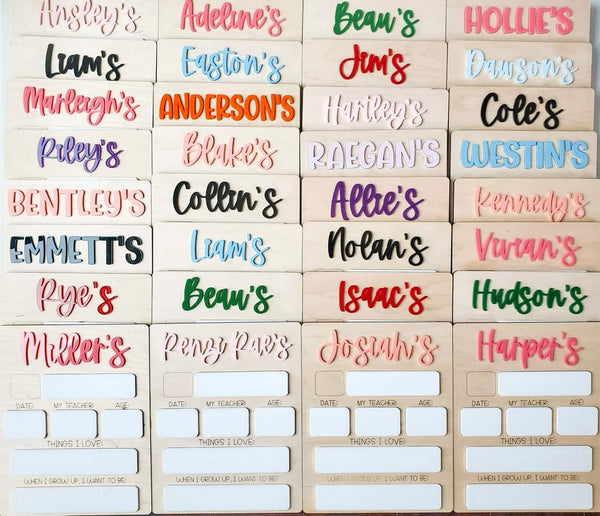 Ansley's Adeline's Beau's HOLLIE'S
Liam's Easton's Jim's Dawson's
Marleigh's ANDERSON'S Hartley's Cole's
Riley's Blake's RAEGAN'S WESTIN'S
BENTLEY'S Collin's Allie's Kennedy's
EMMETT'S Liam's Nolan's Vivian's
Rye's Beau's Isaac's Hudson's
Miller's Renzi Rae's Josiah's Harper's
DATE: MY TEACHER: AGE: DATE: MY TEACHER: AGE: DATE: MY TEACHER: AGE: DATE: MY TEACHER: AGE:
THINGS I LOVE: THINGS I LOVE: THINGS I LOVE: THINGS I LOVE:
WHEN I GROW UP, I WANT TO BE: WHEN I GROW UP, I WANT TO BE: WHEN I GROW UP, I WANT TO BE: WHEN I GROW UP, I WANT TO BE: